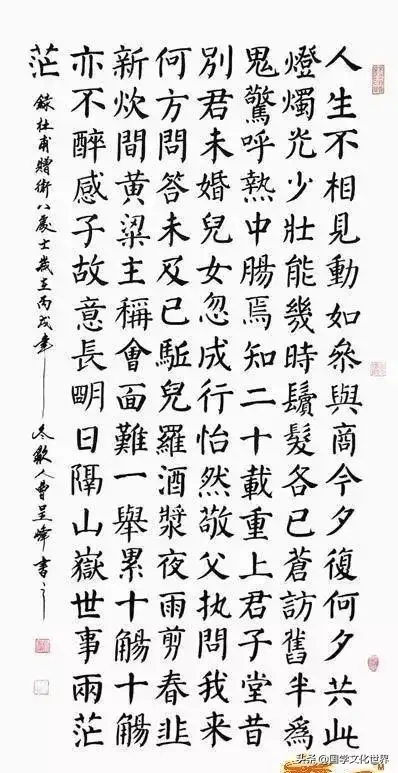 人生不相見動如叅與商今夕復何夕共此
燈燭光少壯能幾時鬢髮各已蒼訪舊半為
鬼驚呼熱中腸焉知二十載重上君子堂昔
別君未婚兒女忽成行怡然敬父执問我來
何方問答未及已駈兒羅酒漿夜雨剪春韭
新炊間黄粱主稱會面難一舉累十觴十觴
亦不醉感子故意長眀日隔山嶽世事兩茫
茫
錄杜甫贈衛八處士歲在丙戌年冬歙人曹呈峰書之
头条 @国学文化世界